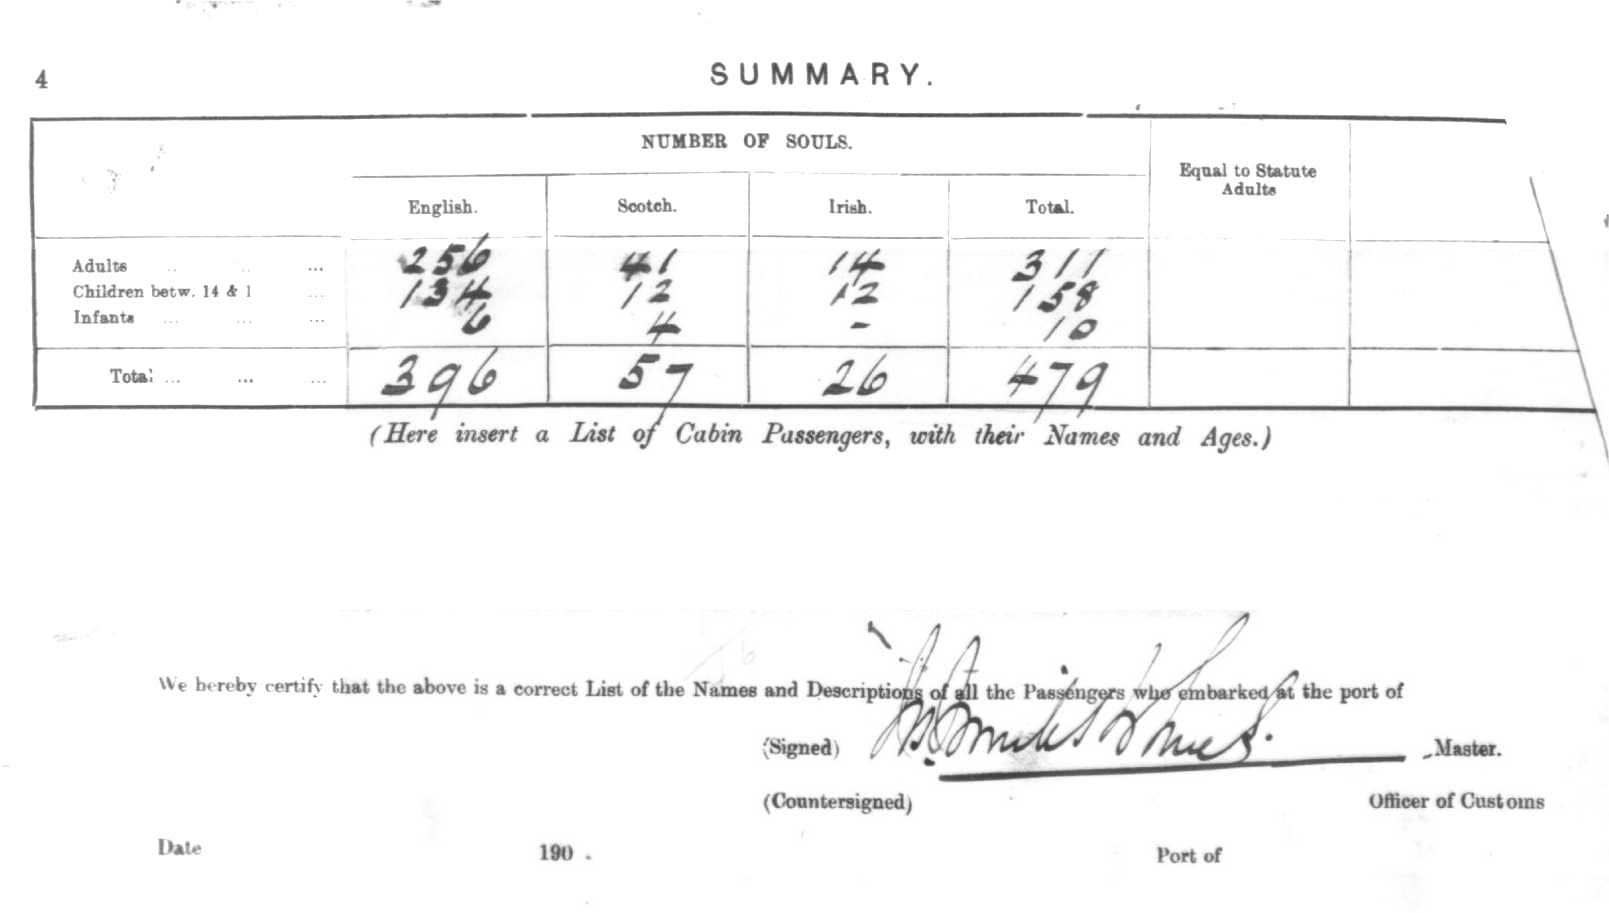 4
SUMMARY.
NUMBER OF SOULS.
Equal to Statute Adults
English. Scotch. Irish. Total.
Adults .. .. ... 256 41 14 311
Children betw. 14 & 1 ... 134 12 12 158
Infants ... ... ... 6 4 - 10
Total ... ... ... 396 57 26 479
(Here insert a List of Cabin Passengers, with their Names and Ages.)
We hereby certify that the above is a correct List of the Names and Descriptions of all the Passengers who embarked at the port of
(Signed) Master.
(Countersigned) Officer of Customs
Date 190 . Port of